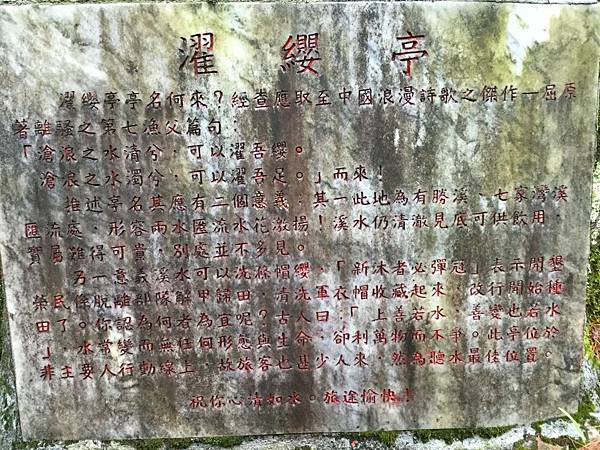 濯纓亭
濯纓亭亭名何來？經查應取至中國浪漫詩歌之傑作—屈原
著離騷之第七漁父篇句：
「滄浪之水清兮，可以濯吾纓。
滄浪之水濁兮，可以濯吾足。」而來！
推述亭名其應有二個意義：其一此地為有勝溪、七家灣溪
匯流處，形容兩水匯流水花激揚！溪水仍清澈見底可供飲用，
實屬難得可貴，別處並不多見。
乃一意義溪水可以洗滌帽纓「新沐者必彈冠」表示開墾
榮民了脫離部隊解甲歸田，清洗軍衣帽收藏起來，改行開始種
田。你認為何者為宜呢？與古人曰：「上善若水，善變也若水
」水常變而無任何形，愈與生命卻「利萬物而不爭」此亭位於
非主要人行動線上，故旅客也甚少人來，然為聽水最佳位置。
祝你心清如水。旅途愉快！